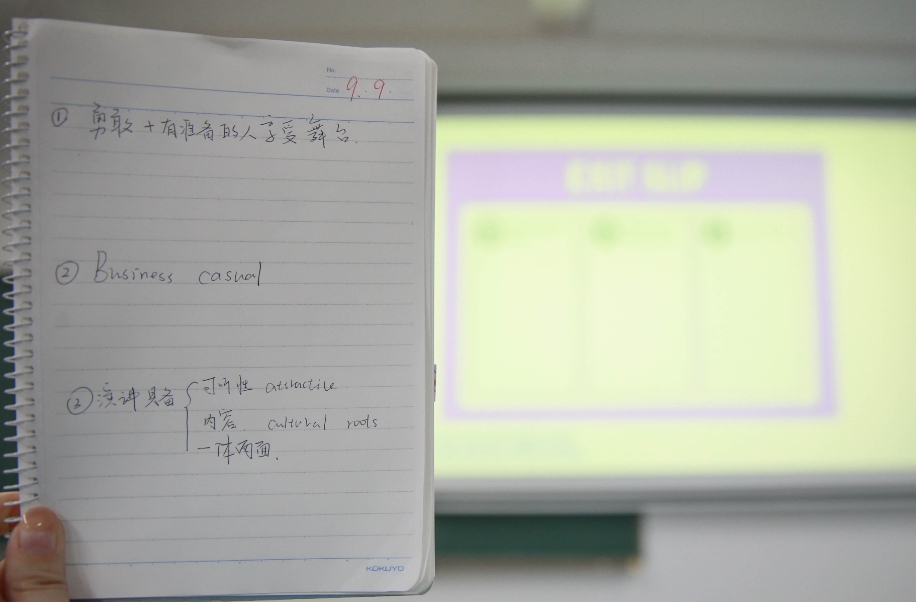 No.
Date 9.9.
① 勇敢+有准备的人享受舞台.
② Business casual
② 演讲具备 { 可听性 attractive
内容 cultural roots
一体两面.
KOKUYO